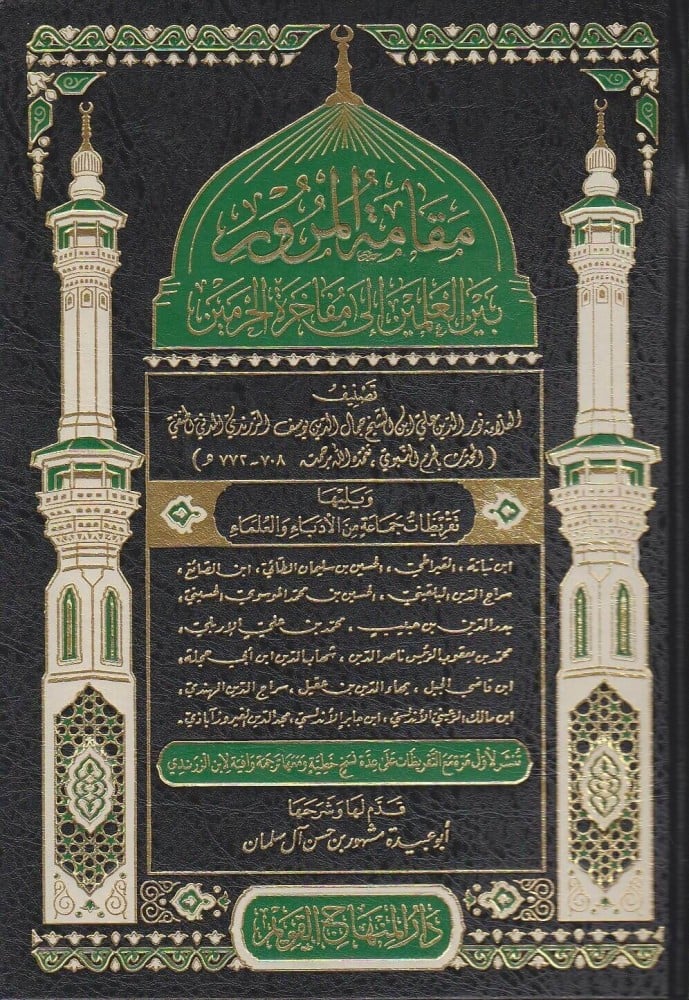 مقامة المرور
بين العلمين إلى مفاخرة الحرمين
تصنيف
العلامة نور الدين علي ابن الشيخ جمال الدين يوسف الزرندي المدني الحنفي
(المحدث بالحرم النبوي، تغمده الله برحمته ٧٠٨-٧٧٢ هـ)
ويليها
تقريظات جماعة من الأدباء والعلماء
ابن نباتة، القيراطي، الحسين بن سليمان الطائي، ابن الصائغ،
سراج الدين البلقيني، الحسين بن محمد الموسوي الحسيني،
بدر الدين بن حبيب، محمد بن علي الإربلي،
محمد بن يعقوب الرئيس ناصر الدين، شهاب الدين ابن أبي حجلة،
ابن قاضي الجبل، بهاء الدين بن عقيل، سراج الدين الهندي،
ابن مالك الرعيني الأندلسي، ابن جابر الأندلسي، مجد الدين الفيروزآبادي.
تنشر لأول مرة مع التقريظات على عدة نسخ خطية ومعها ترجمة وافية لابن الزرندي
قدم لها وشرحها
أبو عبيدة مشهور بن حسن آل سلمان
دار المنهاج القويم